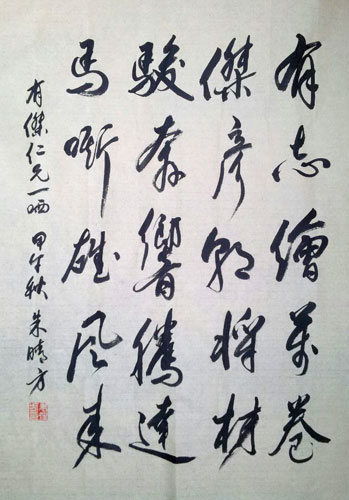 有志繪萬卷
傑彥 將材
駿奔響騰達
馬嘶雄風來
有傑仁兄一哂 甲午秋 朱晴方